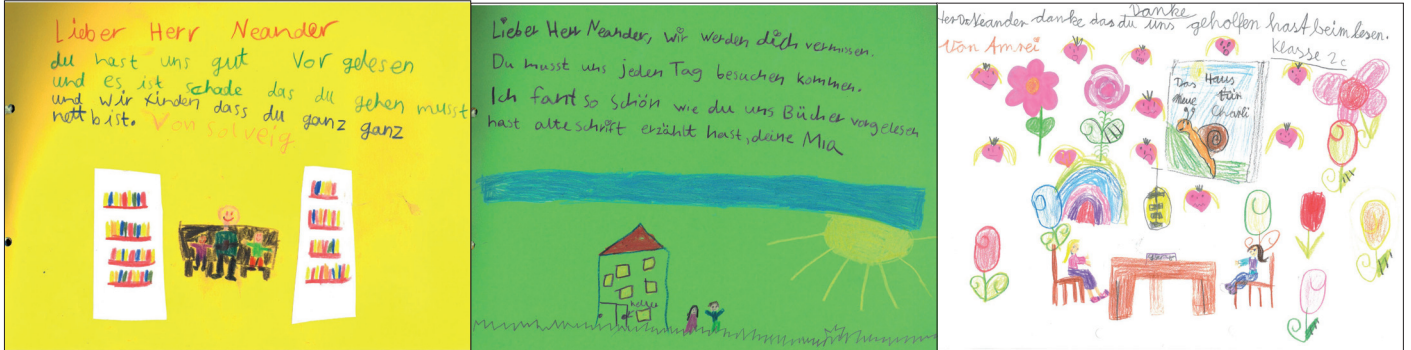 Lieber Herr Neander
du hast uns gut Vor gelesen
und es ist schade das du gehen musst
und wir finden dass du ganz ganz
nett bist. Von Solveig
Lieber Herr Neander, wir werden dich vermissen.
Du musst uns jeden Tag besuchen kommen.
Ich fant so schön wie du uns Bücher vorgelesen
hast alte schrift erzählt hast, deine Mia
Danke
Herr Dr Neander danke das du uns geholfen hast beim lesen.
Von Amrei
Klasse 2c
Das Haus
für
Charli